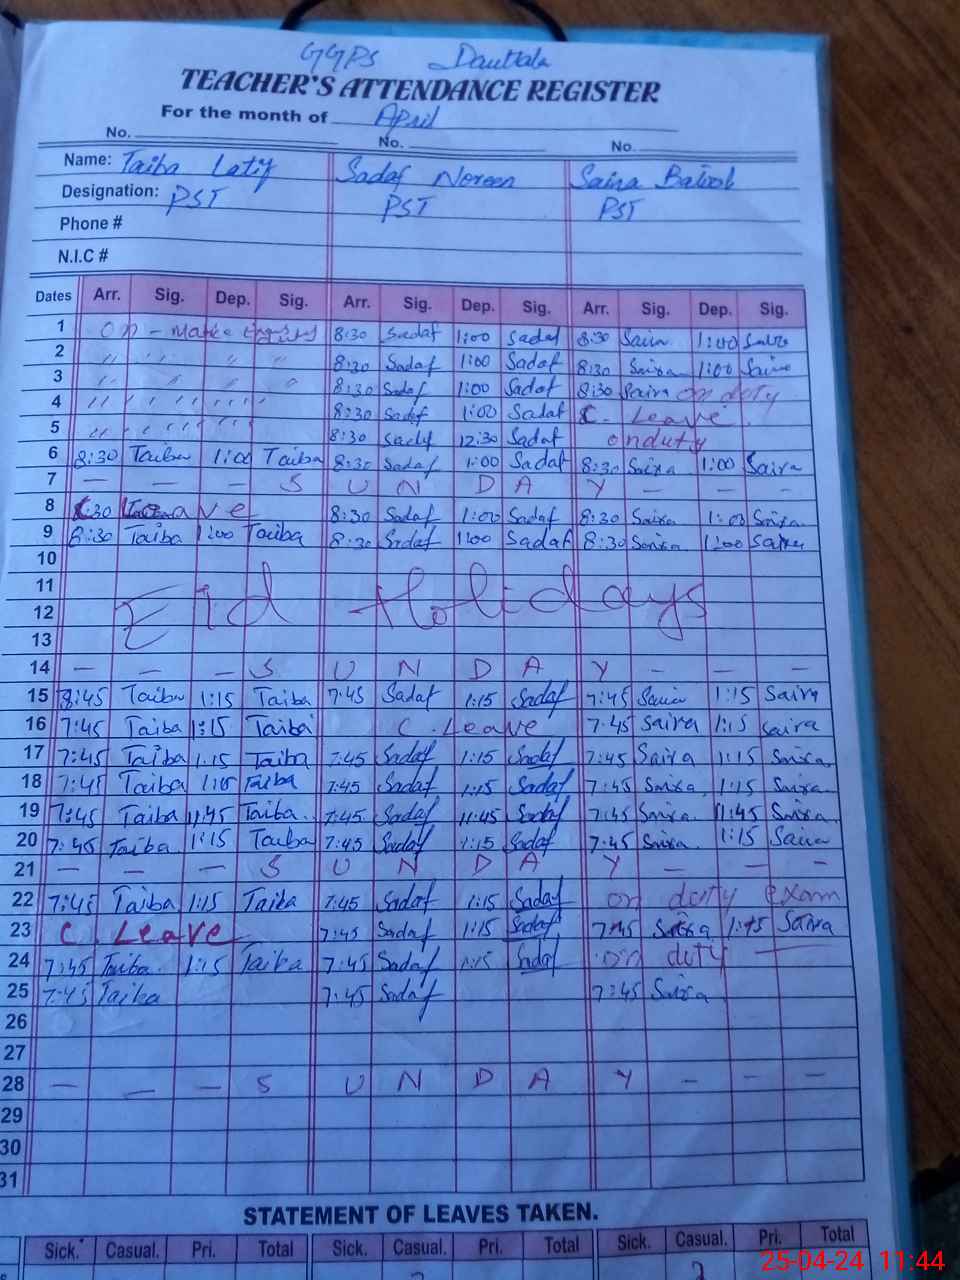 GGPS Dauttala
TEACHER'S ATTENDANCE REGISTER
For the month of April
No. No. No.
Name: Taiba Latif Sadaf Noreen Saira Batool
Designation: PST PST PST
Phone #
N.I.C #
Dates Arr. Sig. Dep. Sig. Arr. Sig. Dep. Sig. Arr. Sig. Dep. Sig.
1 on - 8:30 Sadaf 1:00 Sadaf 8:30 Saira 1:00 Saira
2 " " " " 8:30 Sadaf 1:00 Sadaf 8:30 Saira 1:00 Saira
3 " " " " 8:30 Sadaf 1:00 Sadaf 8:30 Saira on duty
4 " " " " " " 8:30 Sadaf 1:00 Sadaf C. Leave.
5 " " " " " " 8:30 Sadaf 12:30 Sadaf onduty
6 8:30 Taiba 1:00 Taiba 8:30 Sadaf 1:00 Sadaf 8:30 Saira 1:00 Saira
7 — — — S U N D A Y — — —
8 Leave 8:30 Sadaf 1:00 Sadaf 8:30 Saira 1:00 Saira
9 8:30 Taiba 1:00 Taiba 8:30 Sadaf 1:00 Sadaf 8:30 Saira 1:00 Saira
10
11
12 Eid Holidays
13
14 — — — S U N D A Y — — —
15 8:45 Taiba 1:15 Taiba 7:45 Sadaf 1:15 Sadaf 7:45 Saira 1:15 Saira
16 7:45 Taiba 1:15 Taiba C. Leave 7:45 Saira 1:15 Saira
17 7:45 Taiba 1:15 Taiba 7:45 Sadaf 1:15 Sadaf 7:45 Saira 1:15 Saira
18 7:45 Taiba 1:15 Taiba 7:45 Sadaf 1:15 Sadaf 7:45 Saira 1:15 Saira
19 7:45 Taiba 11:45 Taiba 7:45 Sadaf 11:45 Sadaf 7:45 Saira 11:45 Saira
20 7:45 Taiba 1:15 Taiba 7:45 Sadaf 1:15 Sadaf 7:45 Saira 1:15 Saira
21 — — — S U N D A Y — — —
22 7:45 Taiba 1:15 Taiba 7:45 Sadaf 1:15 Sadaf on duty exam
23 C. Leave 7:45 Sadaf 1:15 Sadaf 7:45 Saira 1:15 Saira
24 7:45 Taiba 1:15 Taiba 7:45 Sadaf 1:15 Sadaf on duty —
25 7:45 Taiba 7:45 Sadaf 7:45 Saira
26
27
28 — — — S U N D A Y — — —
29
30
31
STATEMENT OF LEAVES TAKEN.
Sick. Casual. Pri. Total Sick. Casual. Pri. Total Sick. Casual. Pri. Total
25-04-24 11:44